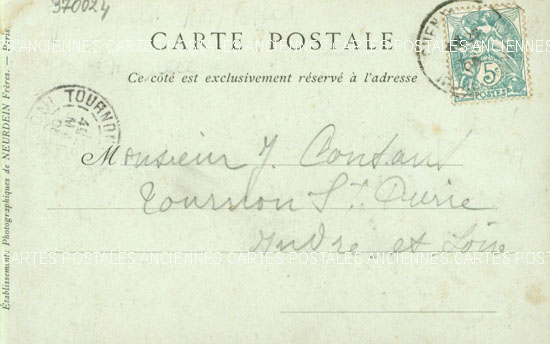 370024
CARTE POSTALE
Ce côté est exclusivement réservé à l'adresse
5c
POSTES
TOURNON
Monsieur J. Constant
Tournon St. Pierre
Indre et Loire
CARTES POSTALES ANCIENNES CARTES POSTALES ANCIENNES CARTES POSTALES
Établissements Photographiques de NEURDEIN Frères. — Paris.